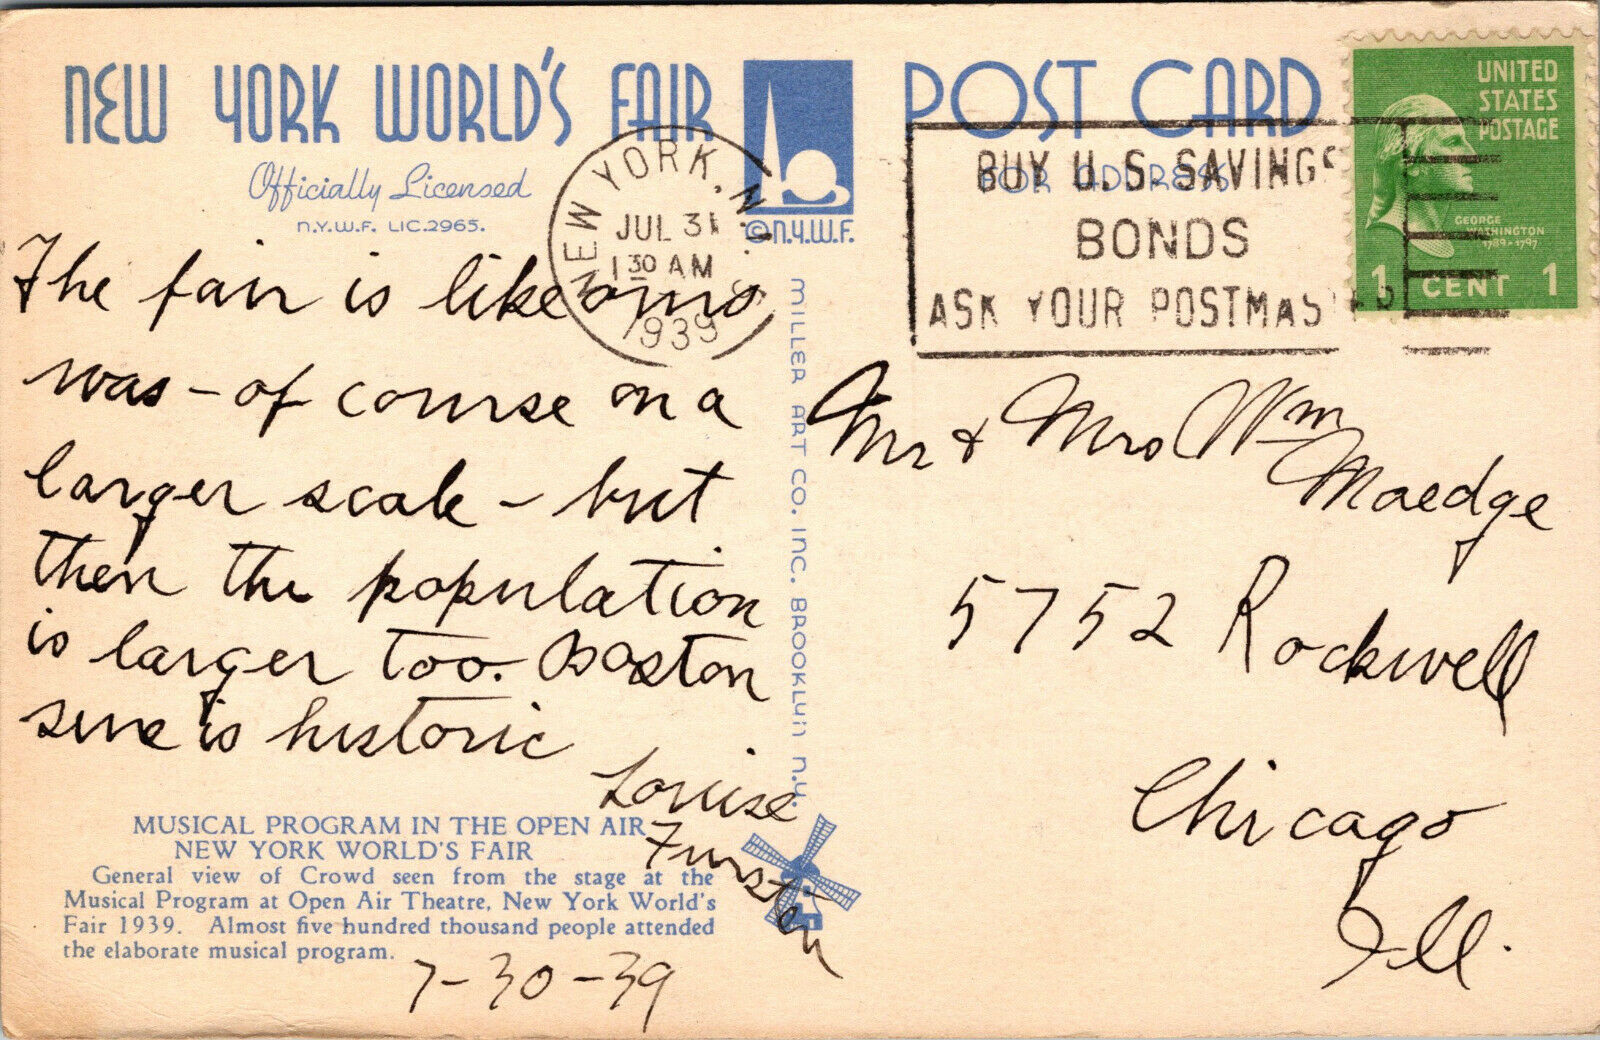 NEW YORK WORLD'S FAIR
Officially Licensed
N.Y.W.F. LIC.2965.
©N.Y.W.F.
POST CARD
FOR ADDRESS
NEW YORK, N.Y.
JUL 31
1 30 AM
1939
BUY U.S. SAVINGS
BONDS
ASK YOUR POSTMASTER
UNITED
STATES
POSTAGE
GEORGE
WASHINGTON
1789-1797
1 CENT 1
The fair is like ours
was - of course on a
larger scale - but
then the population
is larger too. Boston
sure is historic
Louise
Fursten
7-30-39
MILLER ART CO. INC. BROOKLYN N.Y.
Mr & Mrs Wm
Maedge
5752 Rockwell
Chicago
Ill.
MUSICAL PROGRAM IN THE OPEN AIR
NEW YORK WORLD'S FAIR
General view of Crowd seen from the stage at the
Musical Program at Open Air Theatre, New York World's
Fair 1939. Almost five hundred thousand people attended
the elaborate musical program.